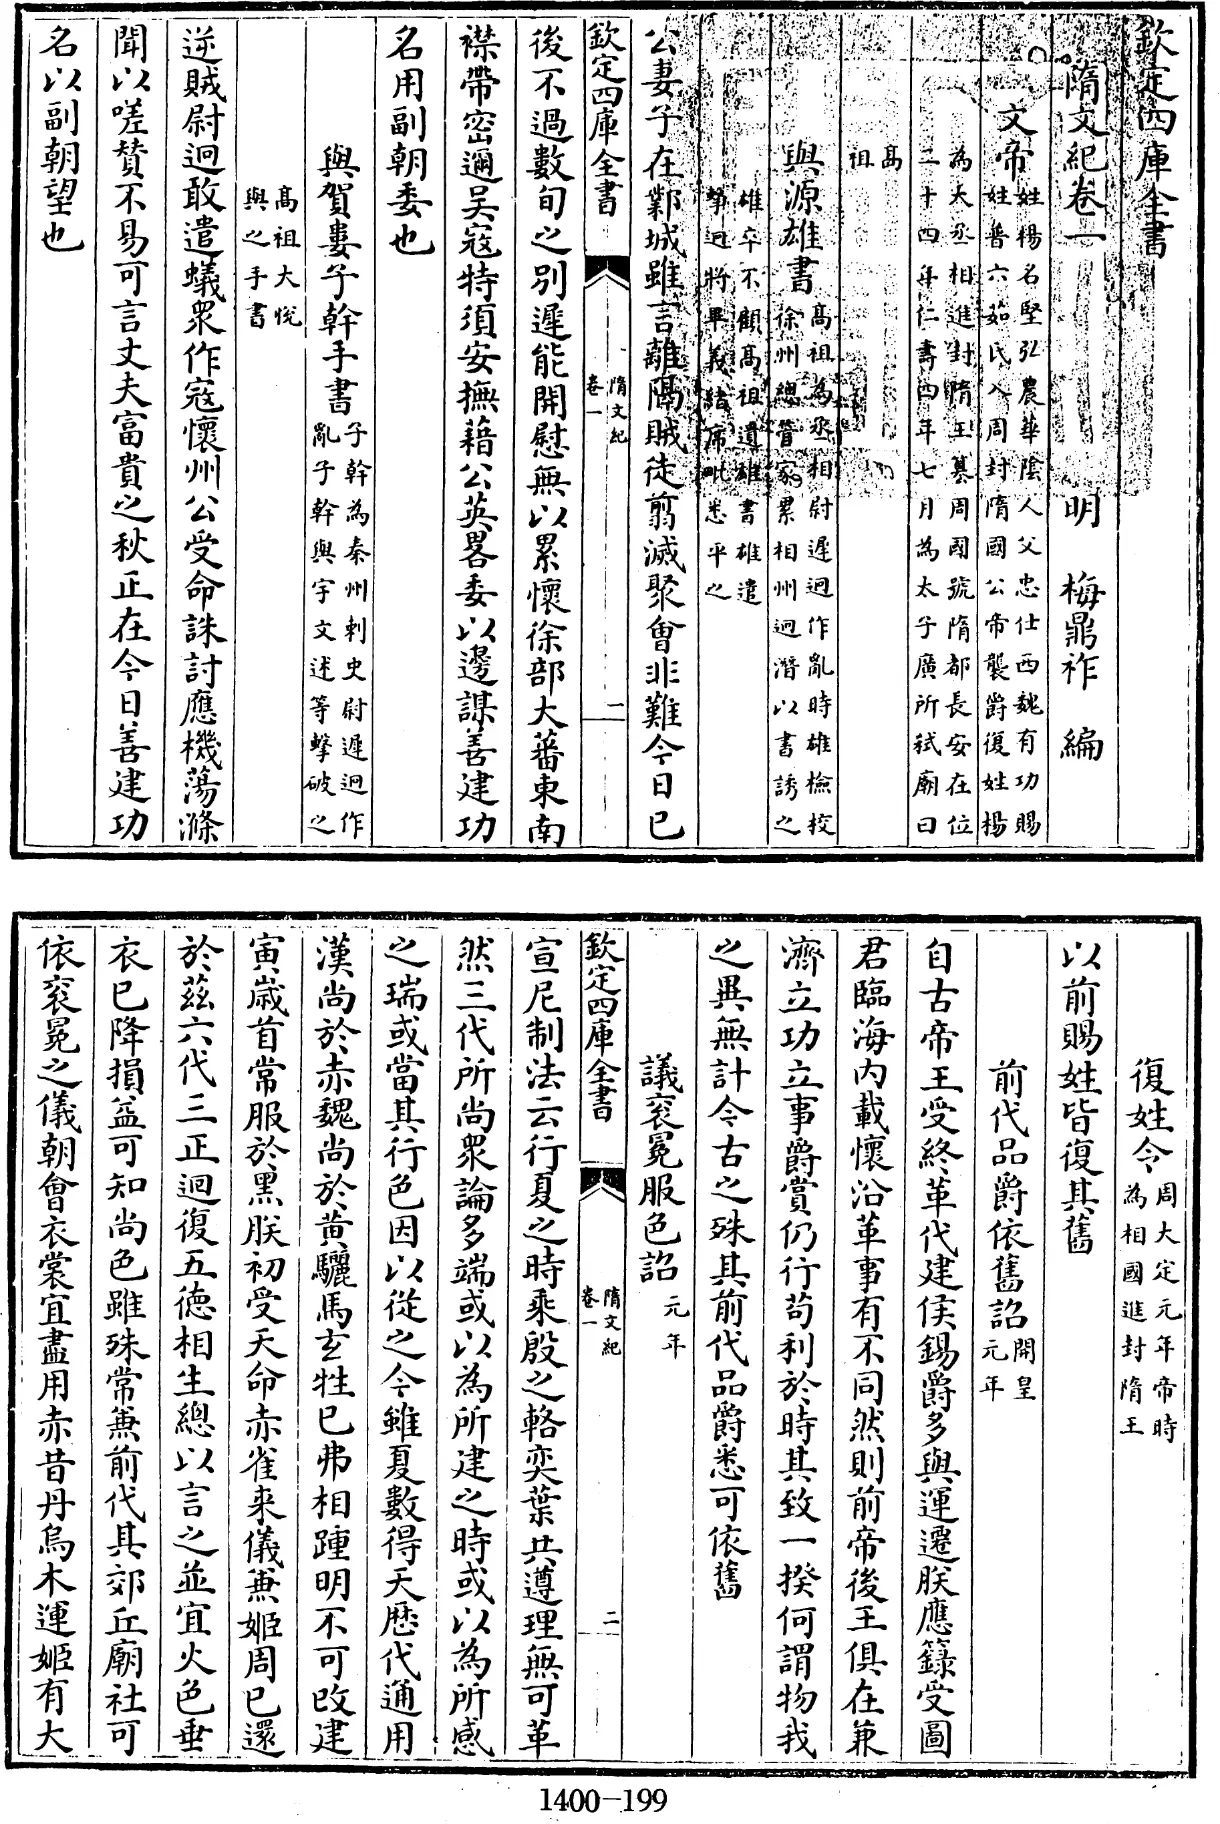 欽定四庫全書
隋文紀卷一 明 梅鼎祚 編
文帝 姓楊名堅弘農華陰人父忠仕西魏有功賜
姓普六茹氏入周封隋國公帝襲爵復姓楊
為大丞相進封隋王篡周國號隋都長安在位
二十四年仁壽四年七月為太子廣所弒廟曰
高
祖
與源雄書 高祖為丞相尉遲迥作亂時雄檢校
徐州總管家累相州迥潛以書誘之
雄卒不顧高祖遺雄書雄遣
擊迥將畢義緒席毗悉平之
公妻子在鄴城雖言離隔賊徒翦滅聚會非難今日已
欽定四庫全書 隋文紀
卷一 一
後不過數旬之別遲能開慰無以累懷徐部大蕃東南
襟帶密邇吳寇特須安撫藉公英畧委以邊謀善建功
名用副朝委也
與賀婁子幹手書 子幹為秦州刺史尉遲迥作
亂子幹與宇文述等擊破之
高祖大悅
與之手書
逆賊尉迥敢遣蟻衆作寇懷州公受命誅討應機蕩滌
聞以嗟贊不易可言丈夫富貴之秋正在今日善建功
名以副朝望也
復姓令 周大定元年帝時
為相國進封隋王
以前賜姓皆復其舊
前代品爵依舊詔 開皇
元年
自古帝王受終革代建侯錫爵多與運遷朕應籙受圖
君臨海内載懷沿革事有不同然則前帝後王俱在兼
濟立功立事爵賞仍行苟利於時其致一揆何謂物我
之異無計今古之殊其前代品爵悉可依舊
議衮冕服色詔 元年
欽定四庫全書 隋文紀
卷一 二
宣尼制法云行夏之時乘殷之輅奕葉共遵理無可革
然三代所尚衆論多端或以為所建之時或以為所感
之瑞或當其行色因以從之今雖夏數得天歷代通用
漢尚於赤魏尚於黄驪馬玄牲已弗相踵明不可改建
寅歲首常服於黑朕初受天命赤雀來儀兼姬周已還
於茲六代三正迴復五德相生總以言之並宜火色垂
衣已降損益可知尚色雖殊常兼前代其郊丘廟社可
依衮冕之儀朝會衣裳宜盡用赤昔丹烏木運姬有大
1400—199